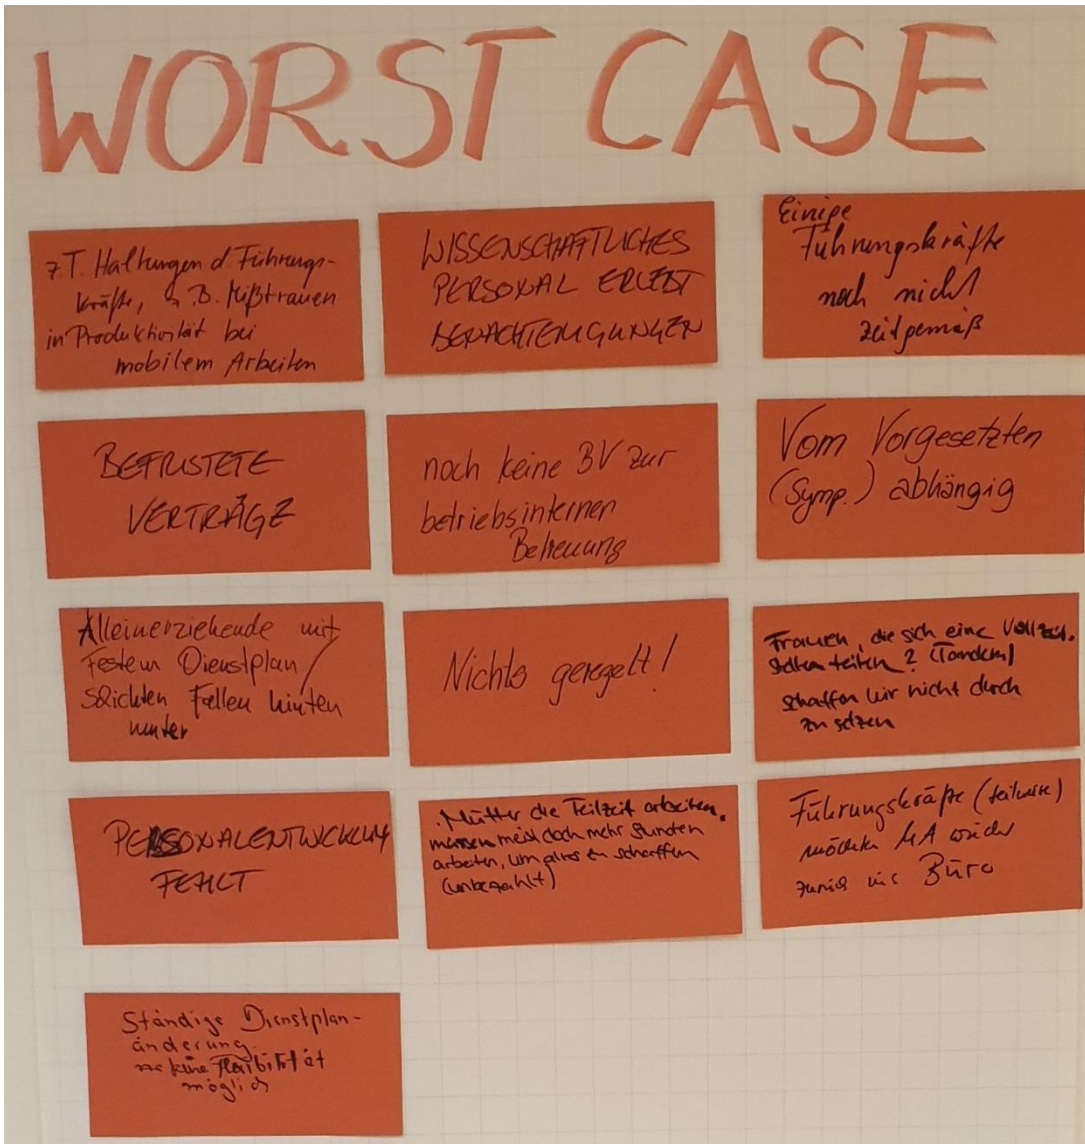 WORST CASE
z.T. Haltungen d. Führungs-
kräfte, z.B. Mißtrauen
in Produktivität bei
mobilem Arbeiten
WISSENSCHAFTLICHES
PERSONAL ERLEBT
BENACHTEILIGUNGEN
Einige
Führungskräfte
noch nicht
zeitgemäß
BEFRISTETE
VERTRÄGE
noch keine BV zur
betriebsinternen
Betreuung
Vom Vorgesetzten
(Symp.) abhängig
Alleinerziehende mit
festem Dienstplan/
Schichten fallen hinten
runter
Nichts geregelt!
Frauen, die sich eine Vollzeit.
stellen teilen? (Tandem)
schaffen wir nicht durch
zu setzen
PERSONALENTWICKLUNG
FEHLT
. Mütter die Teilzeit arbeiten.
müssen meist doch mehr Stunden
arbeiten, um alles zu schaffen
(unbezahlt)
Führungskräfte (teilweise)
möchten MA wieder
zurück ins Büro
Ständige Dienstplan-
änderung
keine Flexibilität
möglich